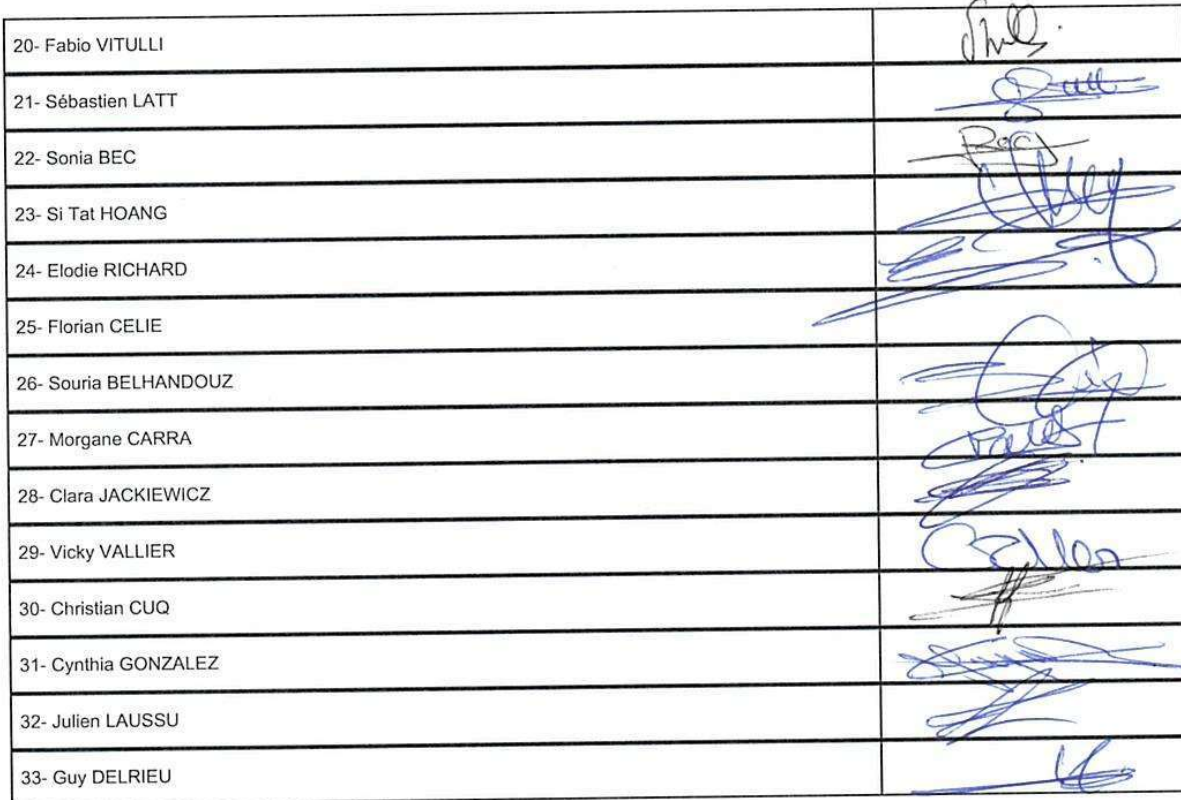 20- Fabio VITULLI
21- Sébastien LATT
22- Sonia BEC
23- Si Tat HOANG
24- Elodie RICHARD
25- Florian CELIE
26- Souria BELHANDOUZ
27- Morgane CARRA
28- Clara JACKIEWICZ
29- Vicky VALLIER
30- Christian CUQ
31- Cynthia GONZALEZ
32- Julien LAUSSU
33- Guy DELRIEU